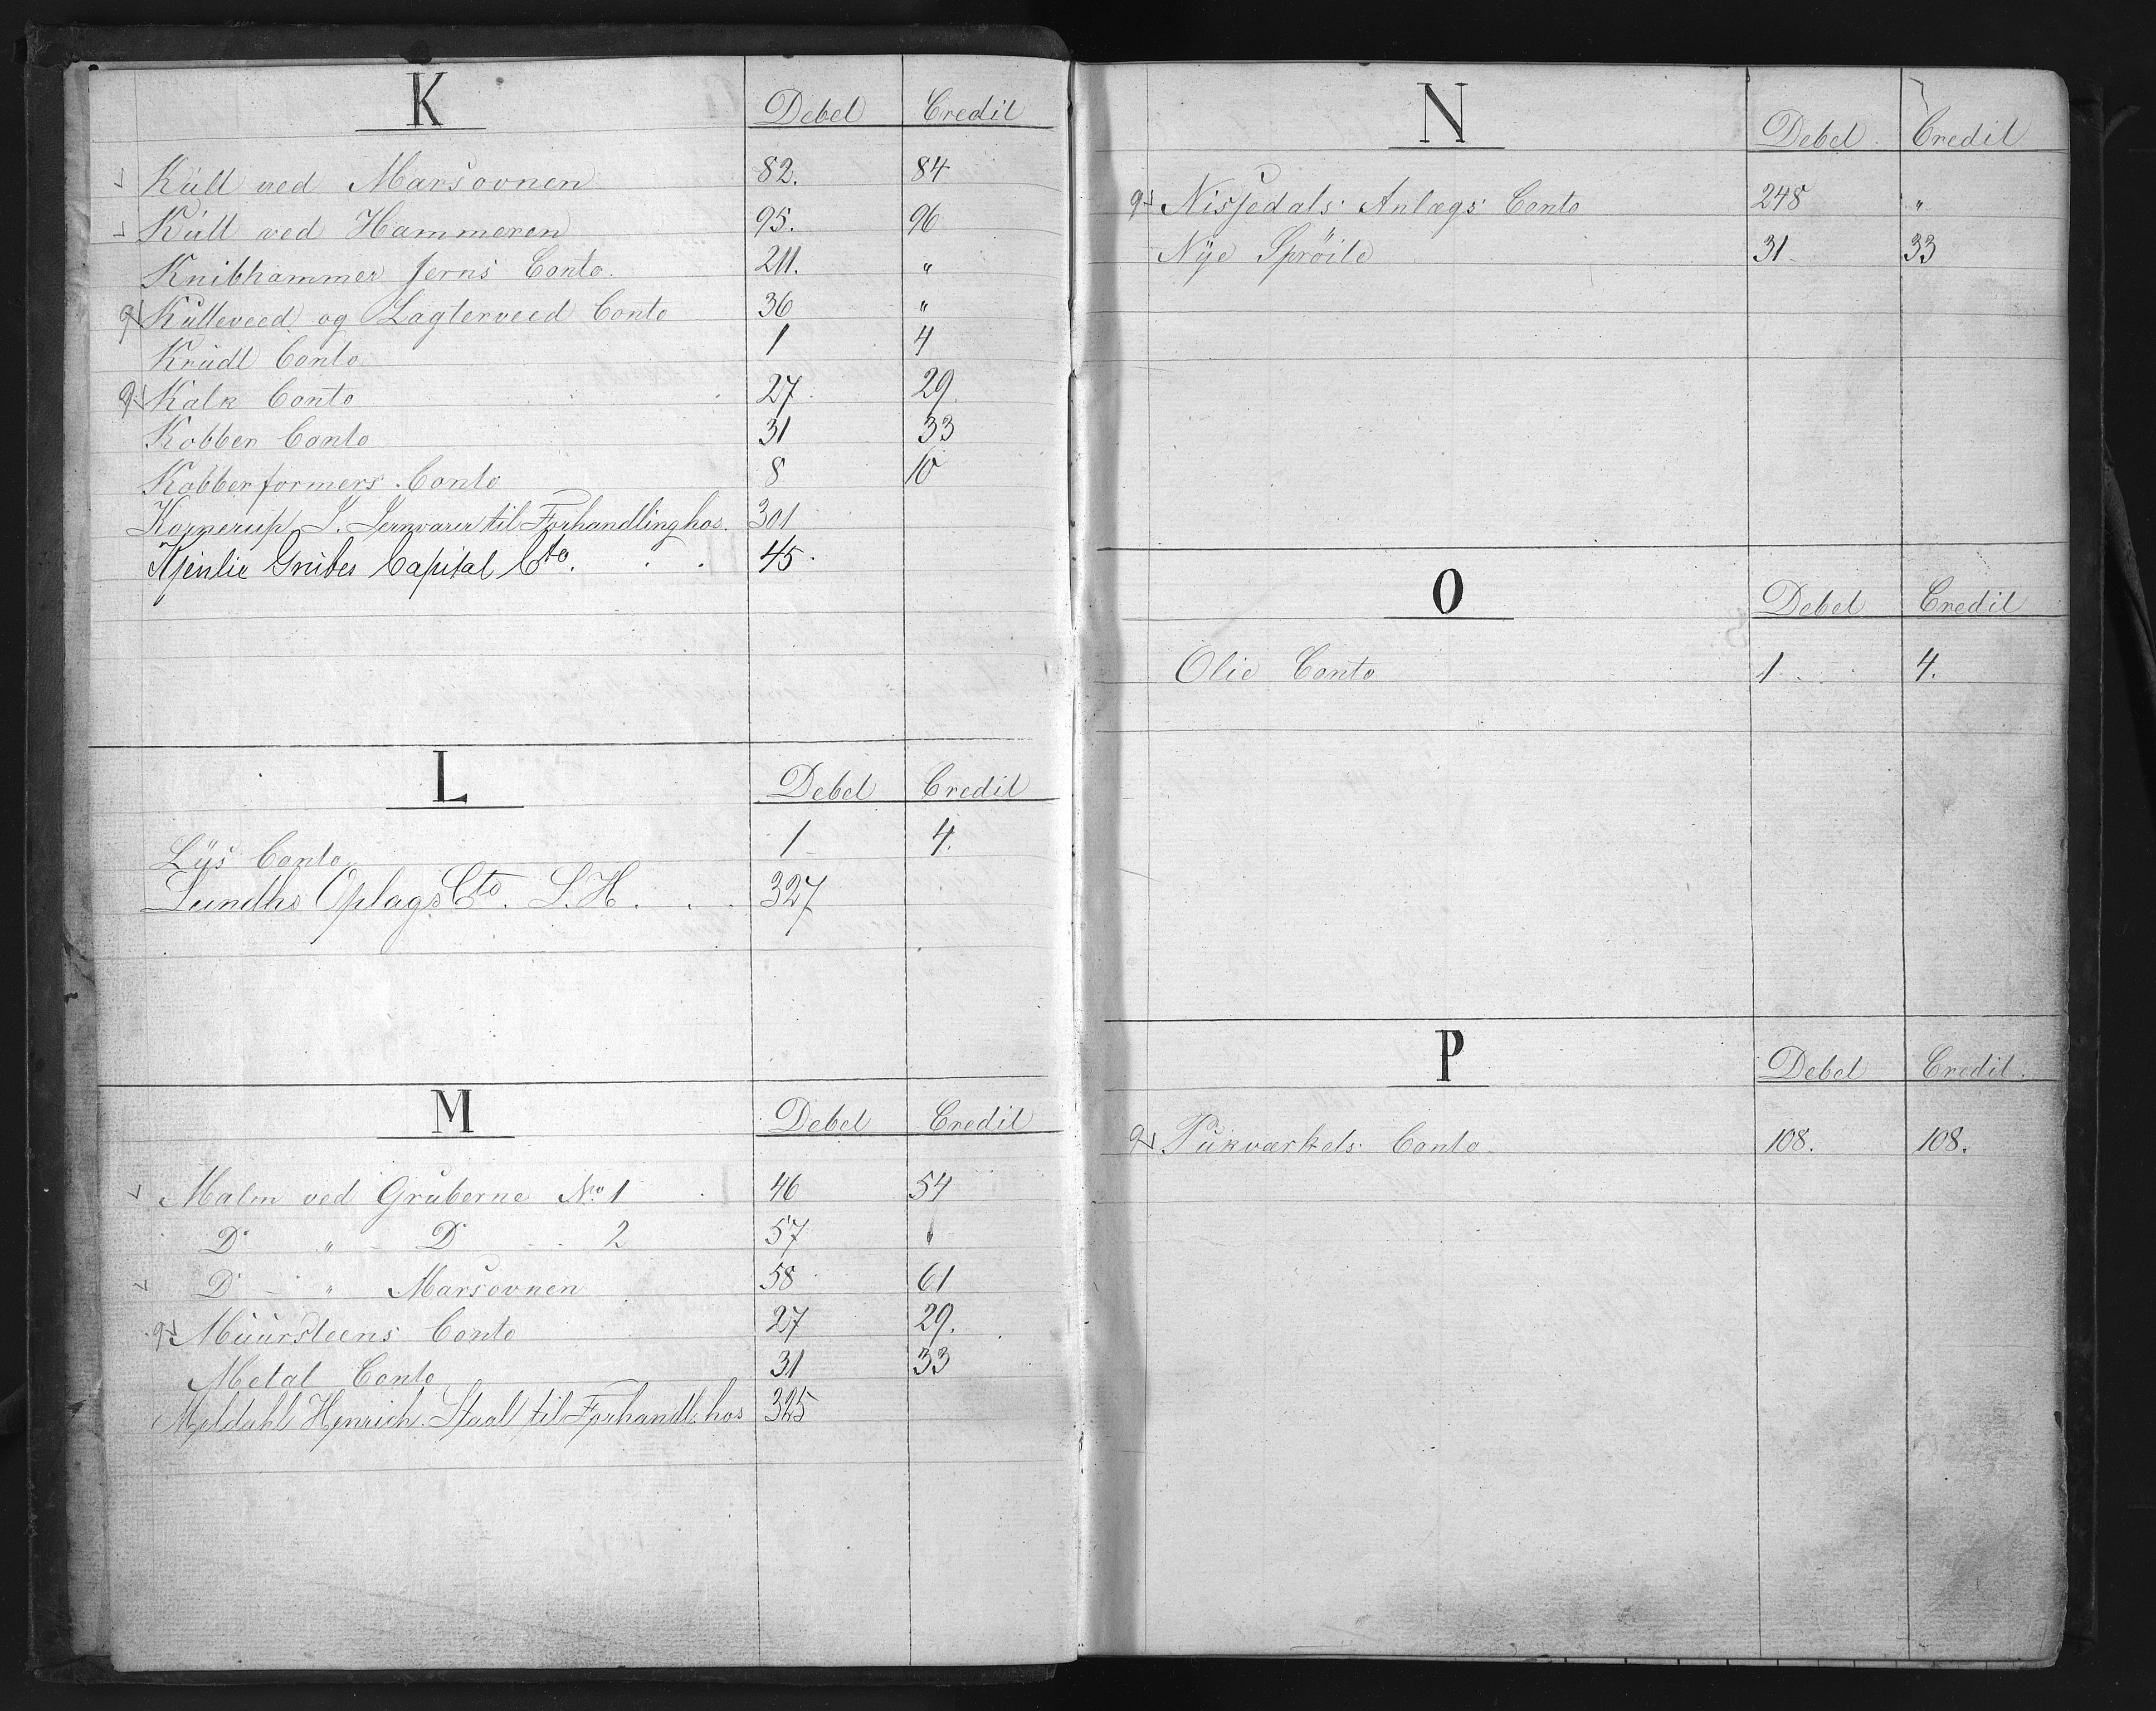 K Debet Credit
Küll ved Marsovnen 82. 84
Küll ved Hammeren 95. 96
Knibhammer Jerns Conto. 211. "
Külleveed og Lagterveed Conto 36 "
Krüdt Conto 1 4
Kalk Conto 27. 29.
Kobber Conto 31 33
Kobberformers Conto 8 10
Kornerup, J. Jernvarer til Forhandling hos. 301
Kjenlie Grubes Capital Cto. . . 45.
L Debet Credit
Lÿs Conto 1 4.
Lundhs Oplags Cto. L.H. . . . 327
M Debet Credit
Malm ved Grüberne No. 1 46 54
Do " Do 2 57 "
Do " Marsovnen 58 61
Müürsteens Conto 27 29.
Metal Conto 31 33
Meldahl Henrich. Staal til Forhandl. hos 325
N Debet Credit
Nissedals Anlægs Conto 248 "
Nÿe Sprøite 31 33
O Debet Credit
Olie Conto 1 4.
P Debet Credit.
Pukværkets Conto 108. 108.